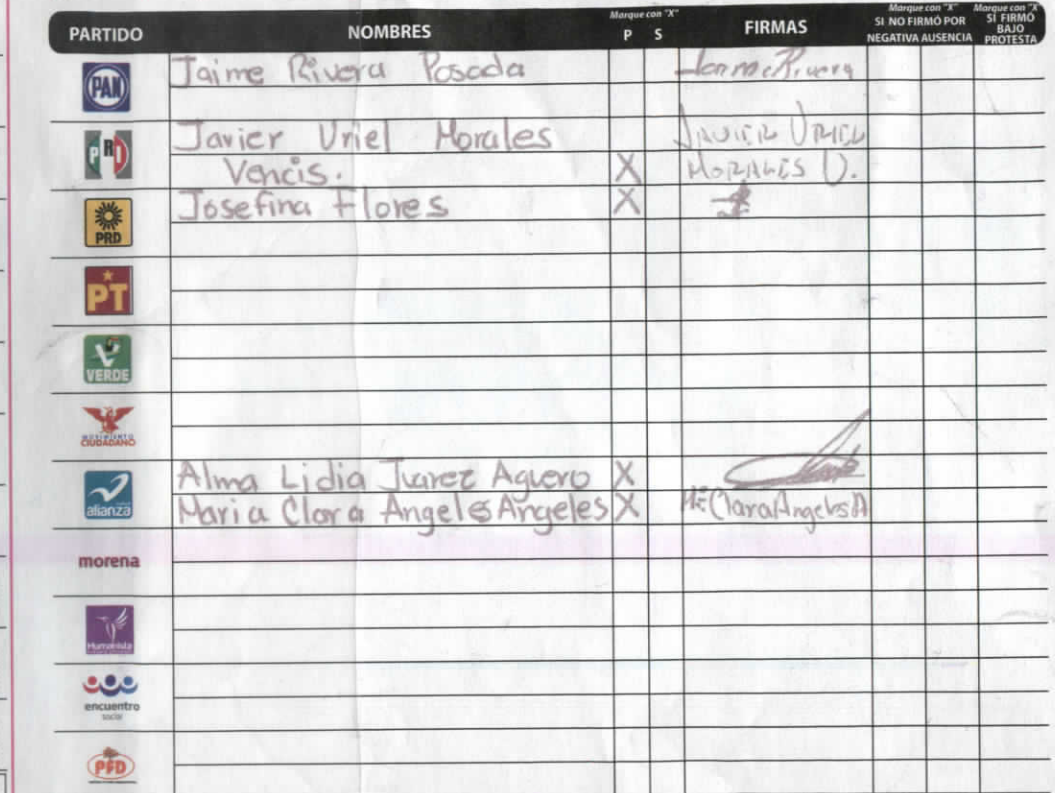 PARTIDO NOMBRES Marque con "X" P S FIRMAS Marque con "X" SI NO FIRMÓ POR NEGATIVA AUSENCIA Marque con "X" SÍ FIRMÓ BAJO PROTESTA
PAN Jaime Rivera Posada Jaime Rivera
PRI Javier Uriel Morales JAVIER URIEL
Vencis. X MORALES V.
PRD Josefina Flores X
PT
VERDE
MOVIMIENTO
CIUDADANO
alianza Alma Lidia Juarez Aguero X
Maria Clara Angeles Angeles X Mª Clara Angeles A
morena
Humanista
encuentro
social
PFD